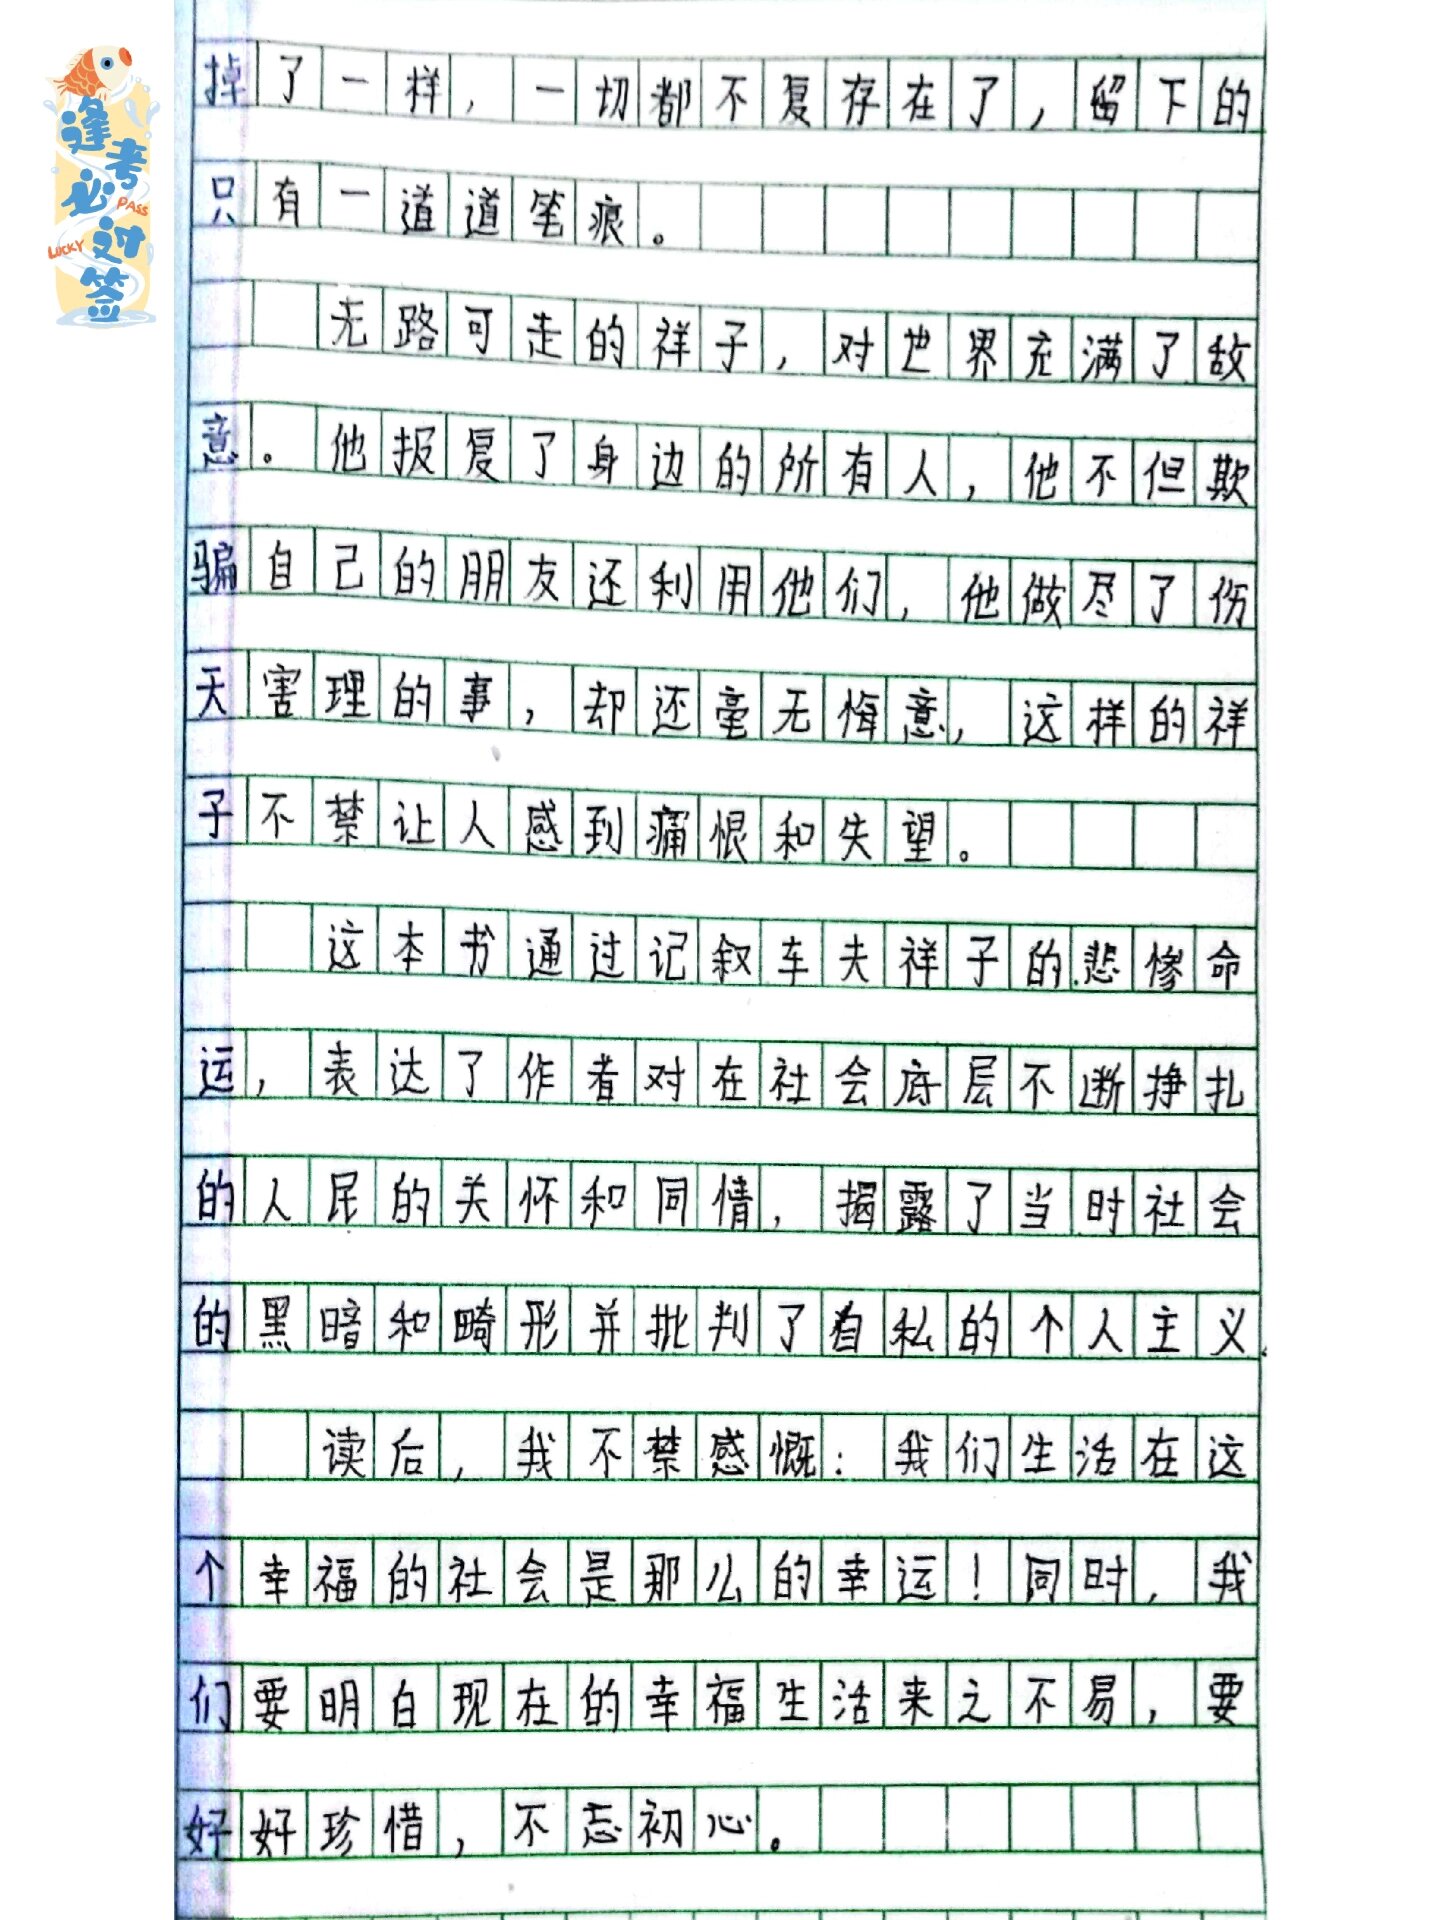 逢考必过签
PASS
LUCKY
掉了一样，一切都不复存在了，留下的
只有一道道笔痕。
无路可走的祥子，对世界充满了敌
意。他报复了身边的所有人，他不但欺
骗自己的朋友还利用他们，他做尽了伤
天害理的事，却还毫无悔意，这样的祥
子不禁让人感到痛恨和失望。
这本书通过记叙车夫祥子的悲惨命
运，表达了作者对在社会底层不断挣扎
的人民的关怀和同情，揭露了当时社会
的黑暗和畸形并批判了自私的个人主义.
读后，我不禁感慨：我们生活在这
个幸福的社会是那么的幸运！同时，我
们要明白现在的幸福生活来之不易，要
好好珍惜，不忘初心。